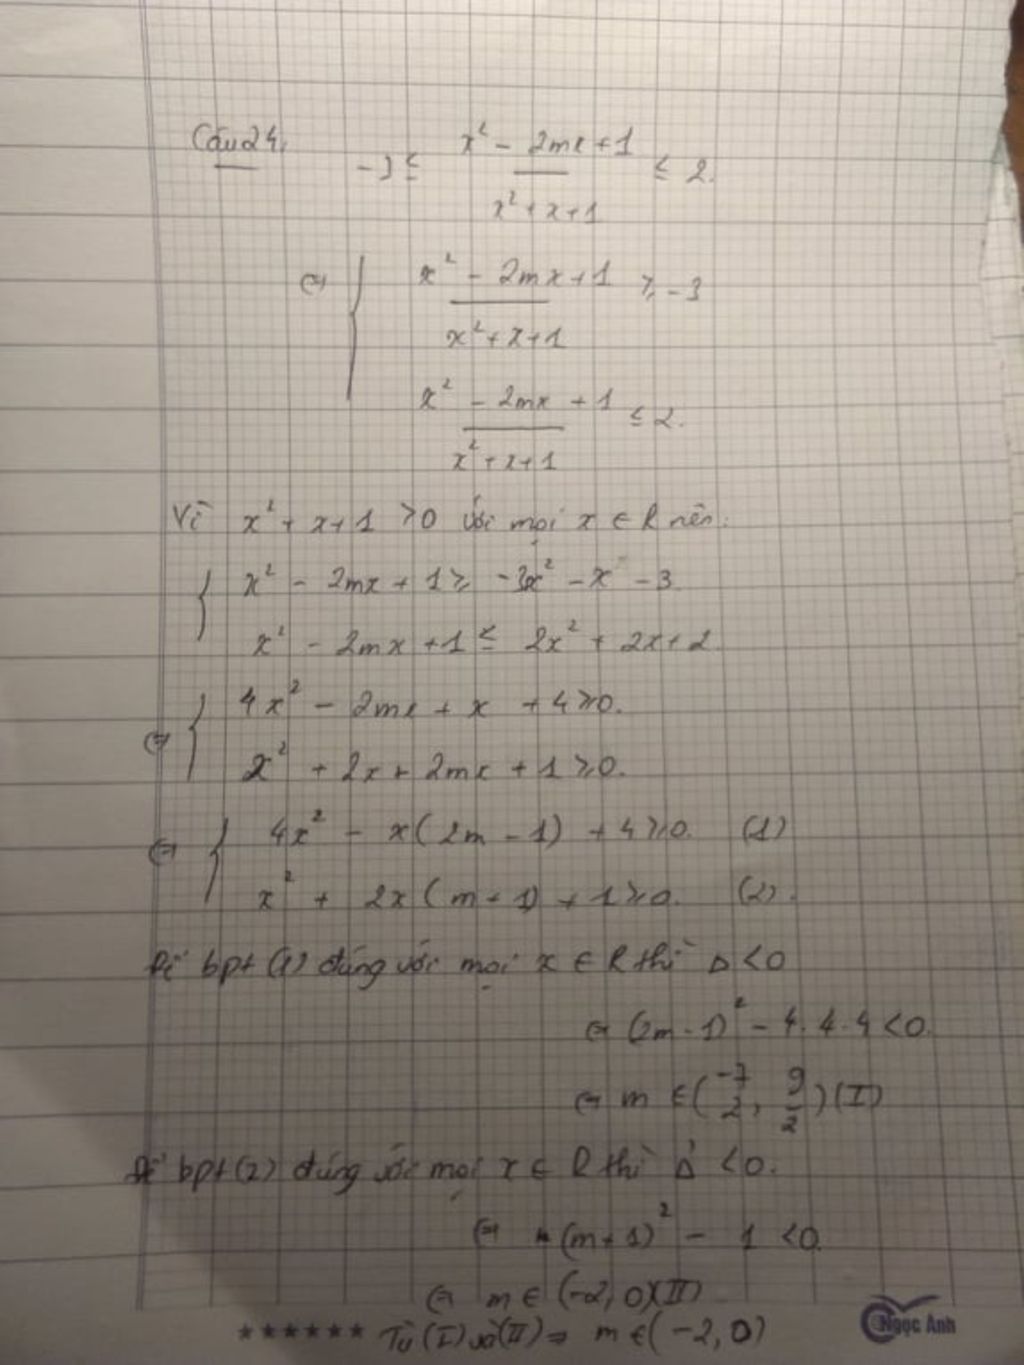 Câu 24.
-3 ≤ (x² - 2mx + 1)/(x² + x + 1) ≤ 2.
⇔ { (x² - 2mx + 1)/(x² + x + 1) ≥ -3
(x² - 2mx + 1)/(x² + x + 1) ≤ 2.
Vì x² + x + 1 > 0 với mọi x ∈ R nên:
{ x² - 2mx + 1 ≥ -3x² - x - 3
x² - 2mx + 1 ≤ 2x² + 2x + 2
⇔ { 4x² - 2mx + x + 4 ≥ 0.
x² + 2x + 2mx + 1 ≥ 0.
⇔ { 4x² - x(2m - 1) + 4 ≥ 0. (1)
x² + 2x(m + 1) + 1 ≥ 0. (2).
Để bpt (1) đúng với mọi x ∈ R thì Δ < 0
⇔ (2m - 1)² - 4.4.4 < 0.
⇔ m ∈ (-7/2, 9/2) (I)
Để bpt (2) đúng với mọi x ∈ R thì Δ' < 0.
⇔ (m + 1)² - 1 < 0
⇔ m ∈ (-2, 0) (II)
****** Từ (I) và (II) ⇒ m ∈ (-2, 0)
Ngọc Ánh